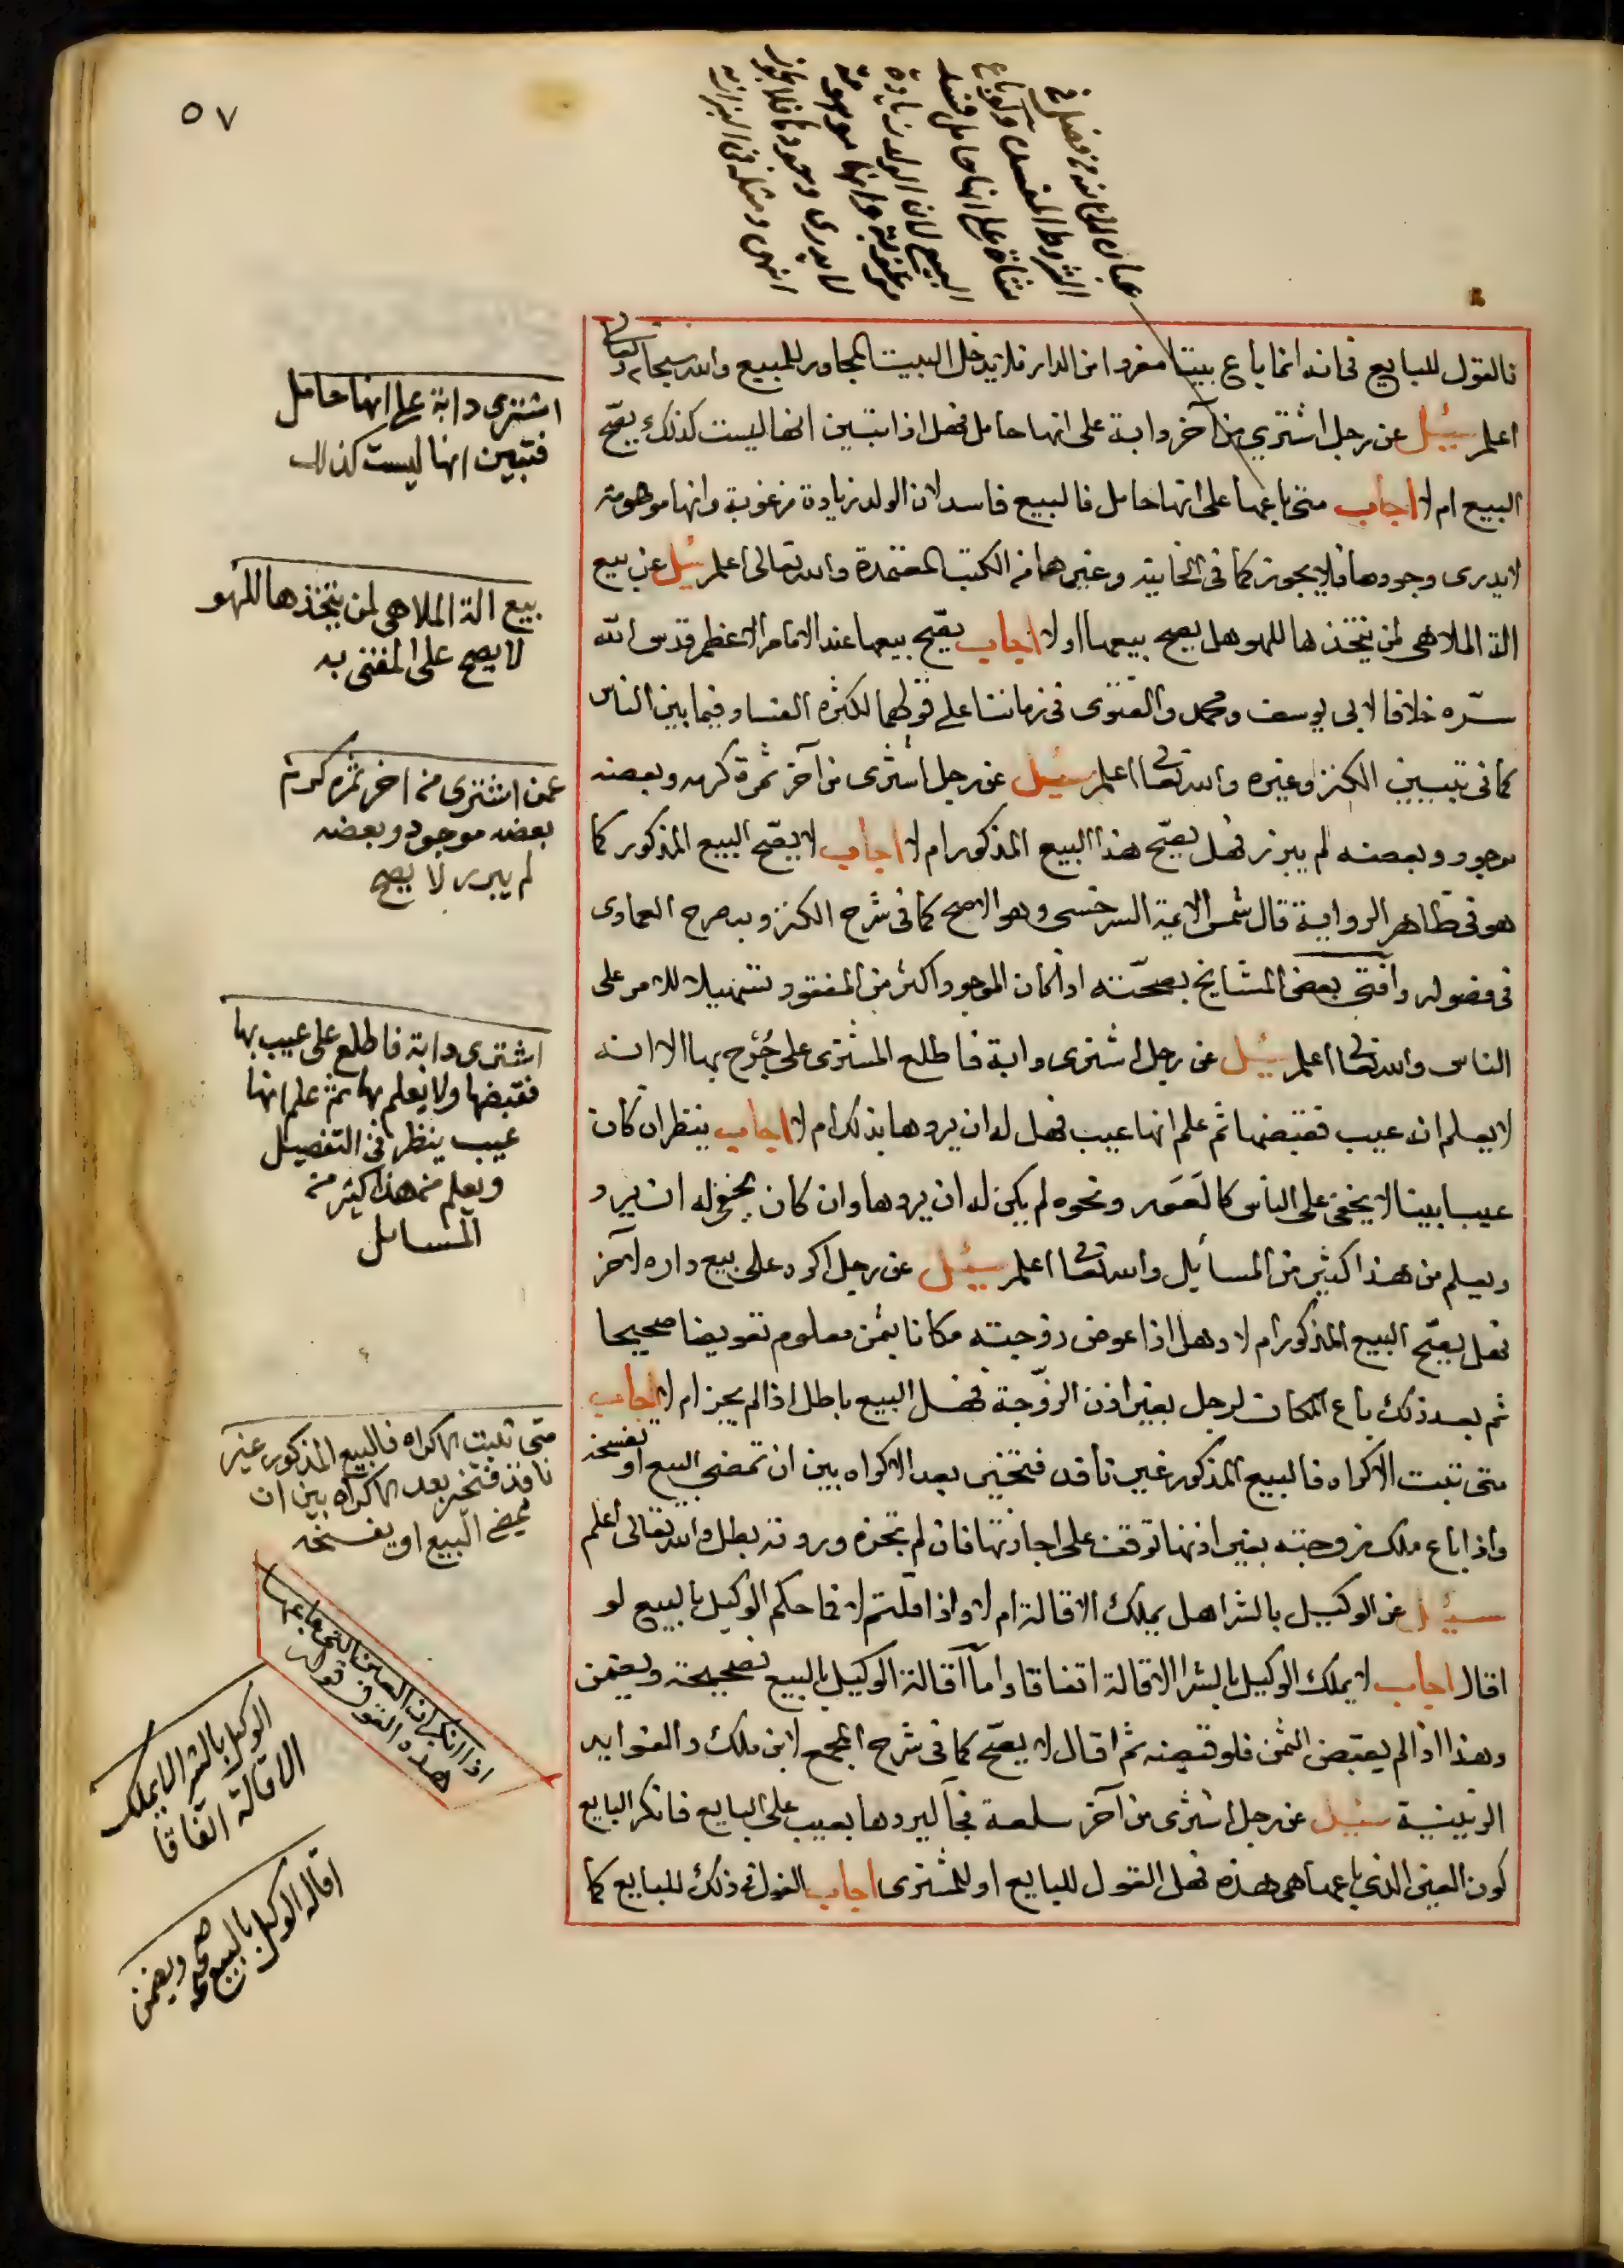 ٥٧
عبارة الخانية من فصل في
الشروط المفسدة ولو باع
شاة على انها حامل فسد
البيع لان الولد زيادة
مرغوبة وانها موهومة
لا يدرى وجودها فلا يجوز
انتهى ومثله في البزازية
فالقول للبايع في انه انما باع بيتا مفردا من الدار فلا يدخل البيت المجاور للمبيع والله سبحانه وتعالى
اعلم سئيل عن رجل اشترى من آخر دابة على انها حامل فهل اذا تبين انها ليست كذلك يصح
البيع ام لا اجاب متى باعها على انها حامل فالبيع فاسد لان الولد زيادة مرغوبة وانها موهومة
لا يدرى وجودها فلا يجوز كما في الخانية وغيرهما من الكتب المعتمدة والله تعالى اعلم سئل عن بيع
الة الملاهى لمن يتخذها للهو هل يصح بيعها او لا اجاب يصح بيعها عند الامام الاعظم قدس الله
سره خلافا لابى يوسف ومحمد والفتوى فى زماننا على قولهما لكثرة الفساد فيما بين الناس
كما فى تبيين الكنز وغيره والله تعالى اعلم سئيل عن رجل اشترى من آخر ثمرة كرمه وبعضه
موجود وبعضه لم يبرز فهل يصح هذا البيع المذكور ام لا اجاب لا يصح البيع المذكور كما
هو فى ظاهر الرواية قال شمس الائمة السرخسى وهو الاصح كما فى شرح الكنز وبه صرح العمادى
فى فصوله وأفتى بعض المشايخ بصحته اذا كان الموجود اكثر من المفقود تسهيلا للامر على
الناس والله تعالى اعلم سئيل عن رجل اشترى دابة فاطلع المشترى على جُرْح بها الا انه
لا يعلم انه عيب فقبضها ثم علم انها عيب فهل له ان يردها بذلك ام لا اجاب ينظر ان كان
عيبا بينا لا يخفى على الناس كالعَوَر ونحوه لم يكن له ان يردها وان كان يخفى له ان يرد
ويعلم من هذا كثير من المسائل والله تعالى اعلم سئيل عن رجل اكره على بيع داره لآخر
فهل يصح البيع المذكور ام لا وهل اذا عوض زوجته مكانا بثمن معلوم تعويضا صحيحا
ثم بعد ذلك باع المكان لرجل بغير اذن الزوجة فهل البيع باطل اذا لم يجز ام لا اجاب
متى ثبت الاكراه فالبيع المذكور غير نافذ فتخير بعد الاكراه بين ان تمضى البيع او تفسخه
واذا باع ملك زوجته بغير اذنها توقف على اجازتها فان لم تجزه وردته بطل والله تعالى اعلم
سئيل عن الوكيل بالشرا هل يملك الاقالة ام لا واذا قلتم لا فما حكم الوكيل بالبيع لو
اقال اجاب لا يملك الوكيل بالشرا الاقالة اتفاقا واما اقالة الوكيل بالبيع فصحيحة ويضمن
وهذا اذا لم يقبض الثمن فلو قبضه ثم اقال لا يصح كما فى شرح المجمع لابن ملك والفوايد
الزينية سئيل عن رجل اشترى من آخر سلعة فجآ ليردها بعيب على البايع فانكر البايع
كون العين الذى باعها هى هذه فهل القول للبايع او للمشترى اجاب القول فى ذلك للبايع كما
اشترى دابة على انها حامل
فتبين انها ليست كذلك
بيع الة الملاهى لمن يتخذها للهو
لا يصح على المفتى به
عمن اشترى من اخر ثمرة كرم
بعضه موجود وبعضه
لم يبرز لا يصح
اشترى دابة فاطلع على عيب بها
فقبضها ولا يعلم بها ثم علم انها
عيب ينظر فى التفصيل
ويعلم من هذا كثير من
المسايل
متى ثبت الاكراه فالبيع المذكور غير
نافذ فتخير بعد الاكراه بين ان
يمضى البيع او يفسخه
اذا انكر ان العين التى باعها
هذه القول قوله
الوكيل بالشرا لا يملك
الاقالة اتفاقا
اقالة الوكيل بالبيع
صحيحة ويضمن